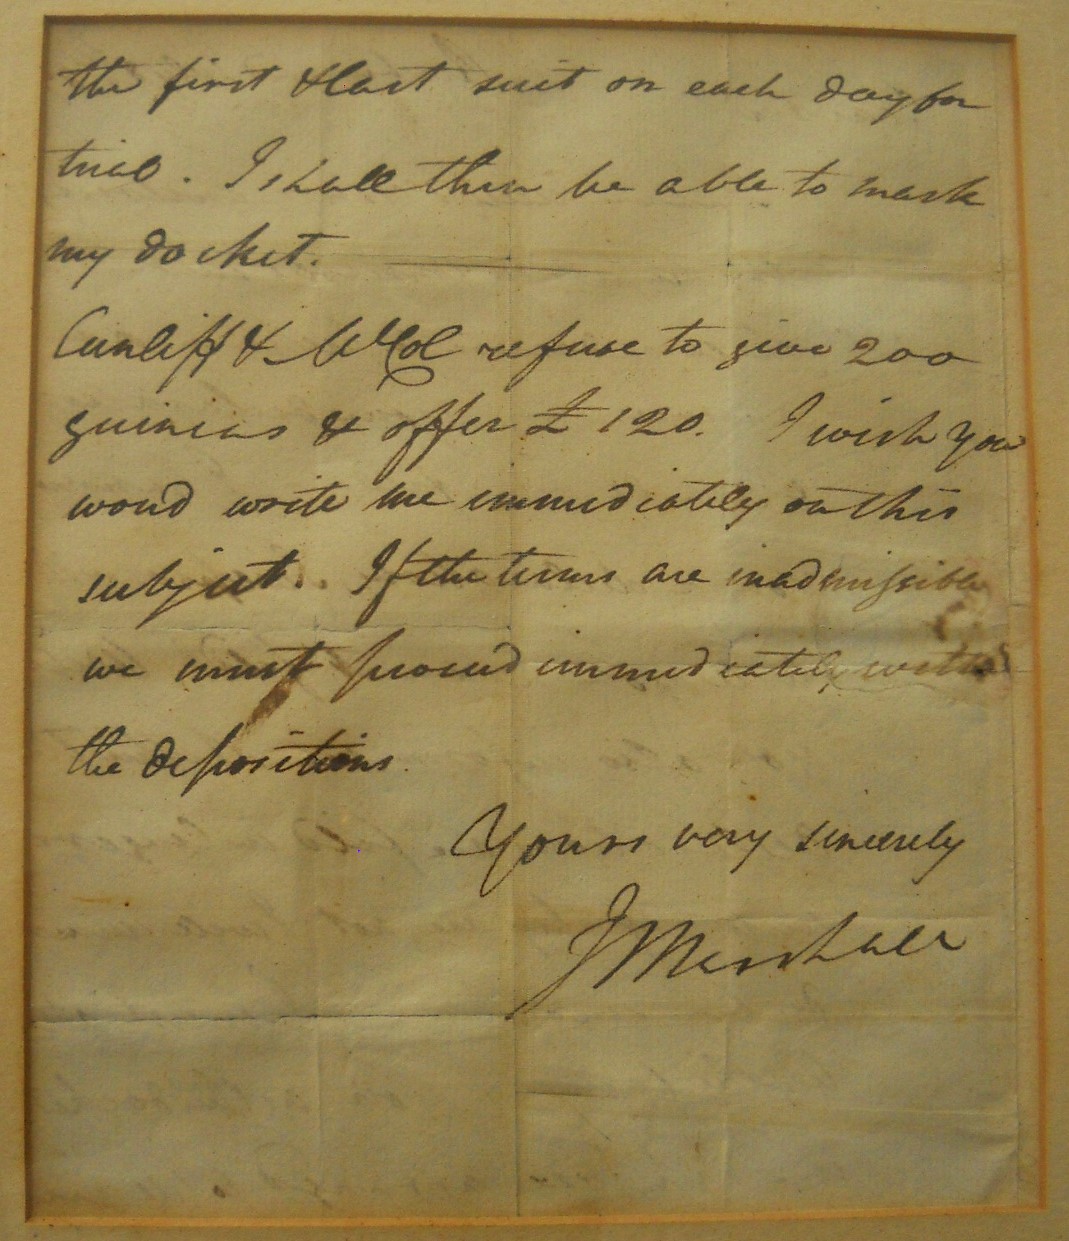 the first & last suit on each day for
trial. I shall then be able to mark
my docket.
Cunliff & McCol refuse to give 200
guineas & offer £120. I wish you
woud write me immediately on this
subject. If the terms are inadmissible
we must proceed immediately with
the depositions.
Yours very sincerely
J Marshall